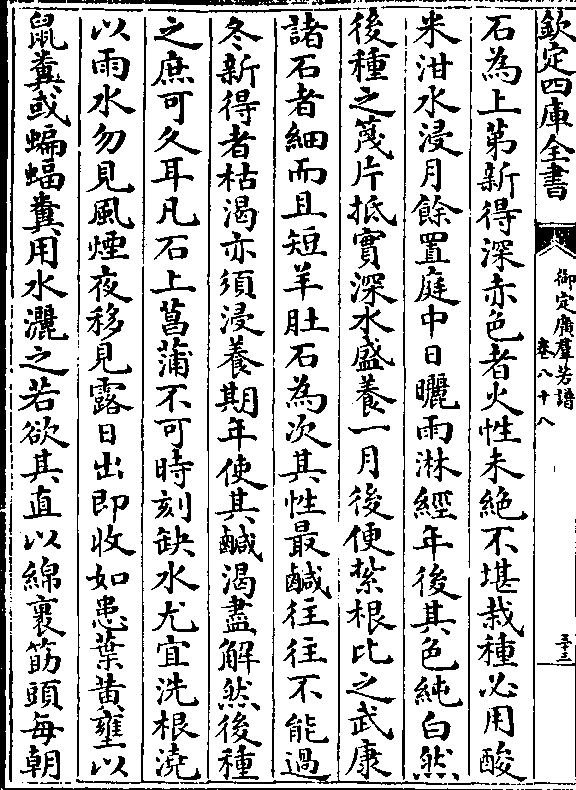 欽定四庫全書
御定廣羣芳譜
卷八十八
三十三
石為上第新得深赤色者火性未絶不堪栽種必用酸
米泔水浸月餘置庭中日曬雨淋經年後其色純白然
後種之篾片抵實深水盛養一月後便紮根比之武康
諸石者細而且短羊肚石為次其性最鹹往往不能過
冬新得者枯渴亦須浸養期年使其鹹渴盡解然後種
之庶可久耳凡石上菖蒲不可時刻缺水尤宜洗根澆
以雨水勿見風煙夜移見露日出即收如患葉黄壅以
鼠糞或蝙蝠糞用水灑之若欲其直以綿裹筯頭每朝